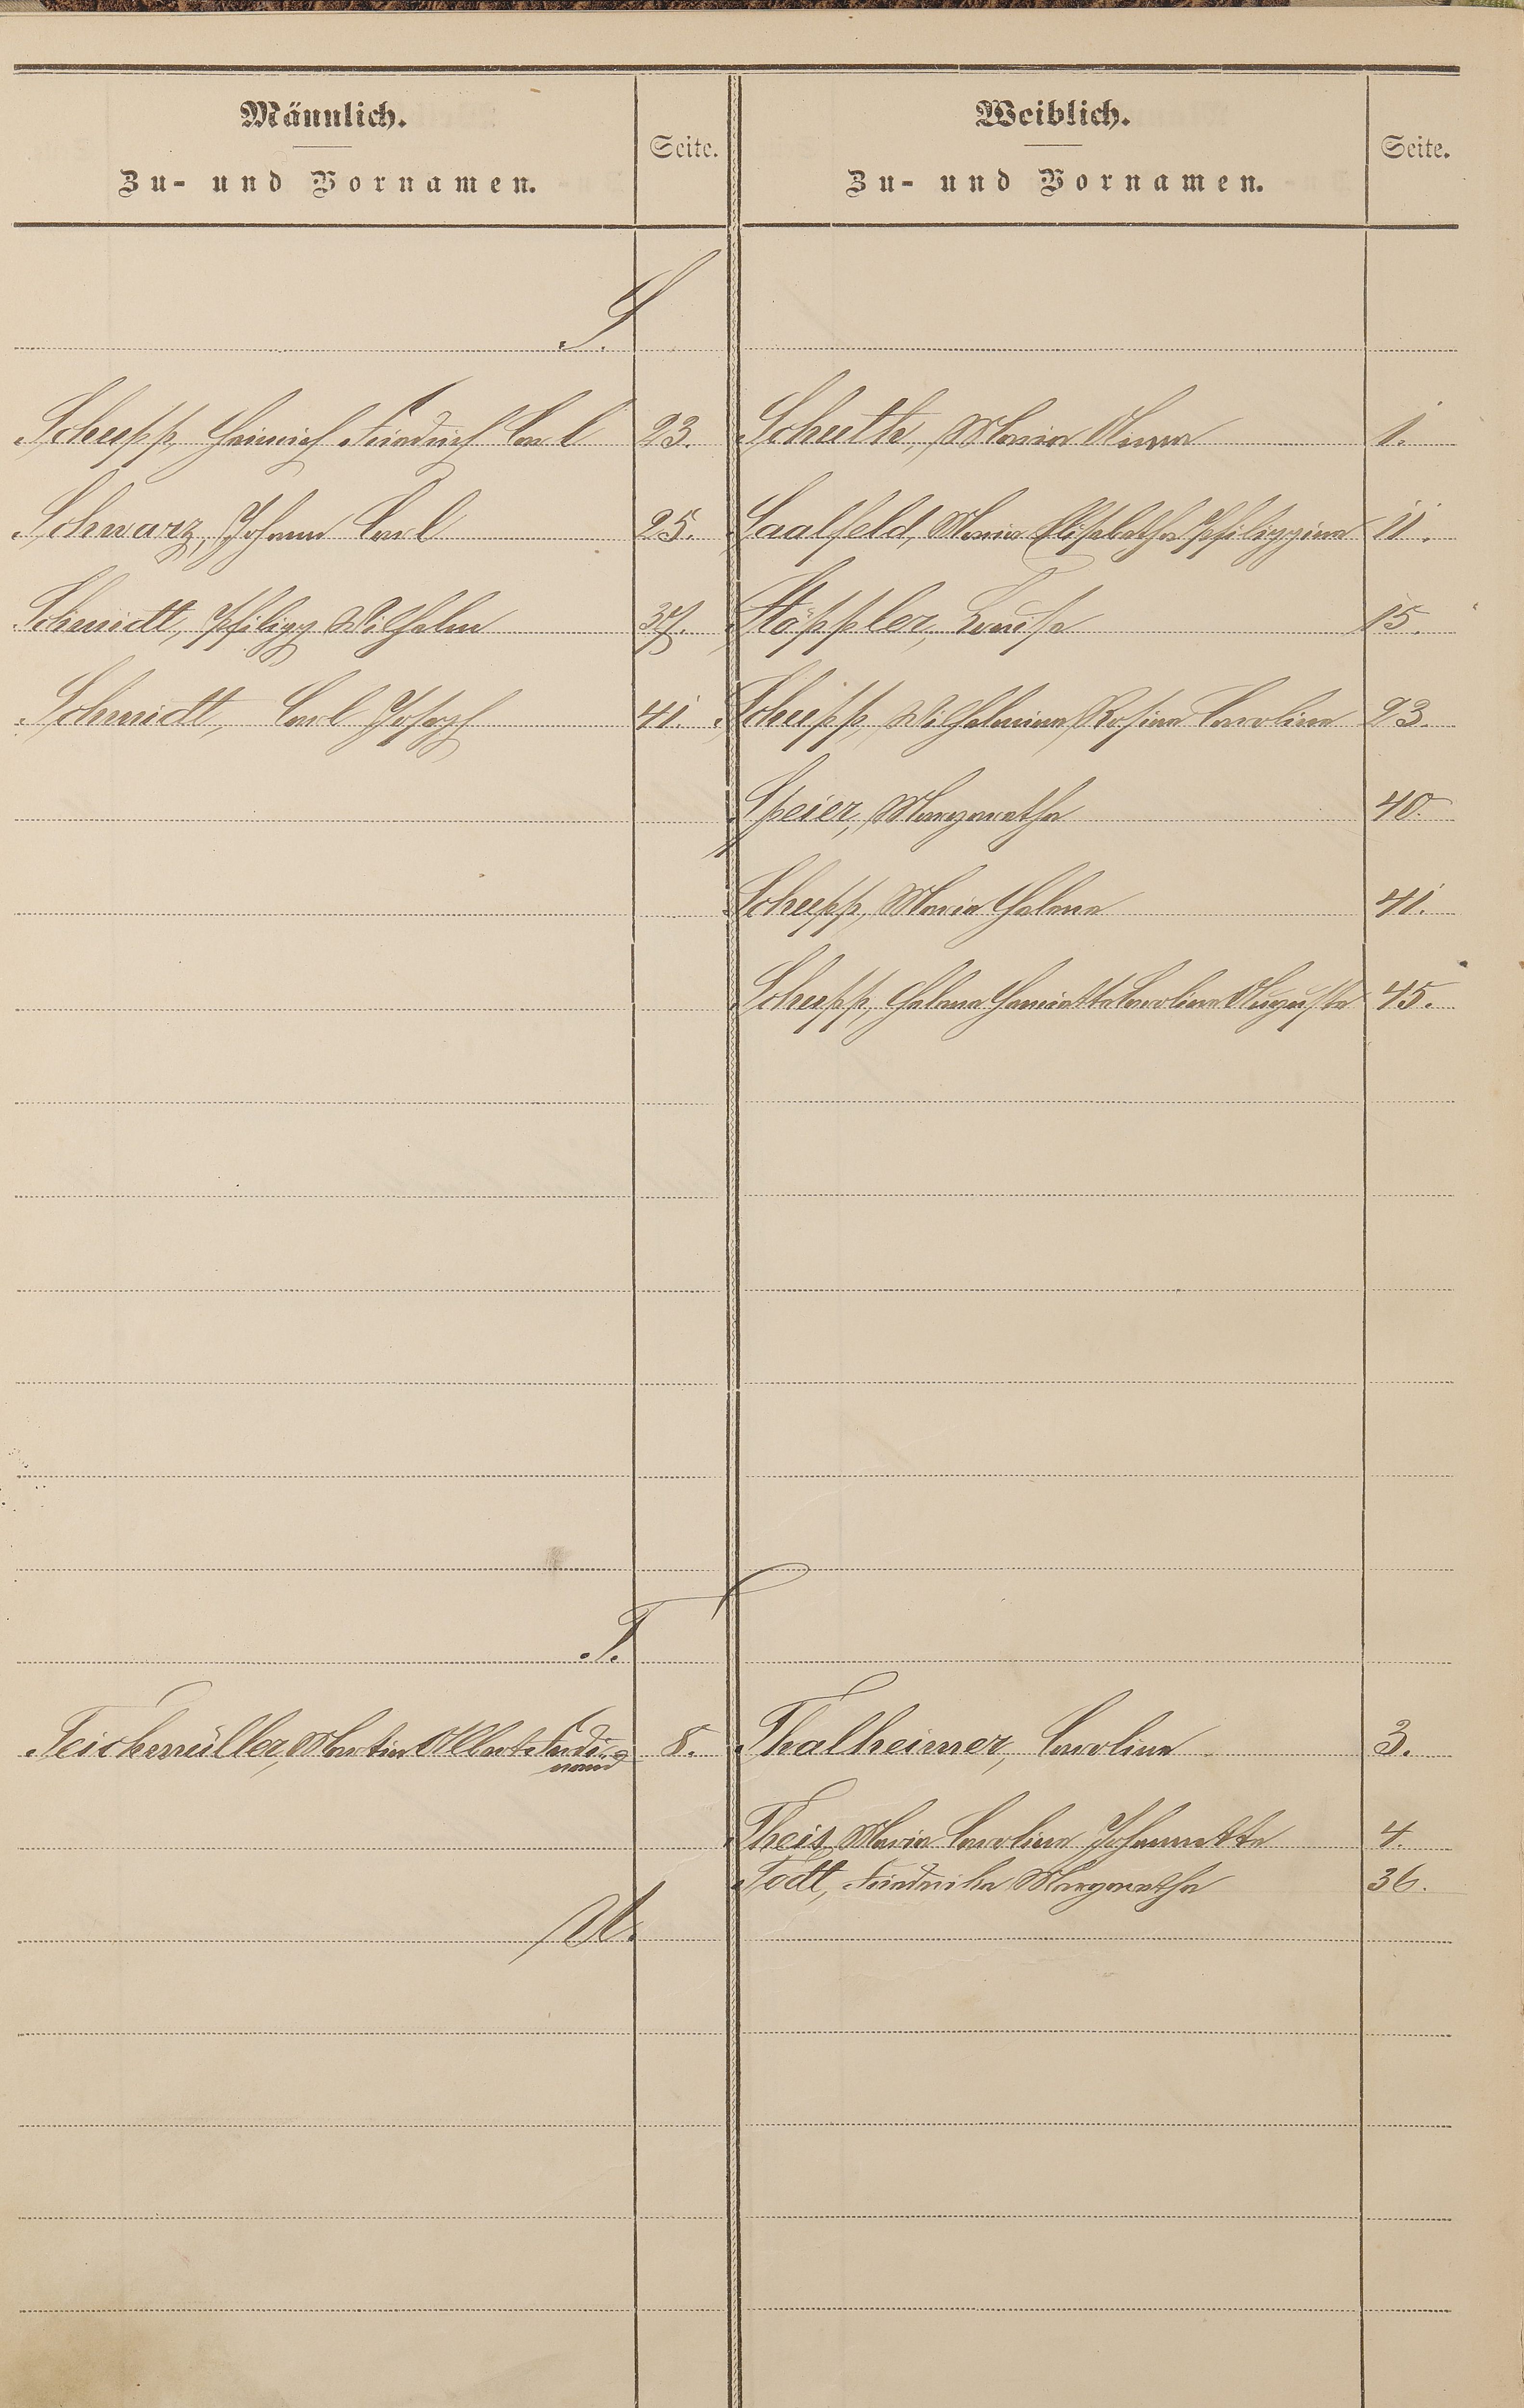 Männlich.
Zu- und Vornamen.
Seite.
Weiblich.
Zu- und Vornamen.
Seite.
S.
Schupp, Heinrich Friedrich Carl 23. Schuth, Maria Anna 1.
Schwarz, Johann Carl 25. Saalfeld, Maria Elisabetha Philippine 11.
Schmidt, Philipp Wilhelm 37. Stöppler, Luise 15.
Schmidt, Carl Joseph 41. Schupp, Wilhelmine Rosina Caroline 23.
Speier, Margaretha 40.
Schupp, Maria Helena 41.
Schupp, Helena Henriette Caroline Auguste 45.
T.
Teichmüller, Martin Albert Ferdi- 8. Thalheimer, Caroline 3.
nand
Theis, Maria Caroline Johannette 4.
Todt, Friedricka Margaretha 36.
U.